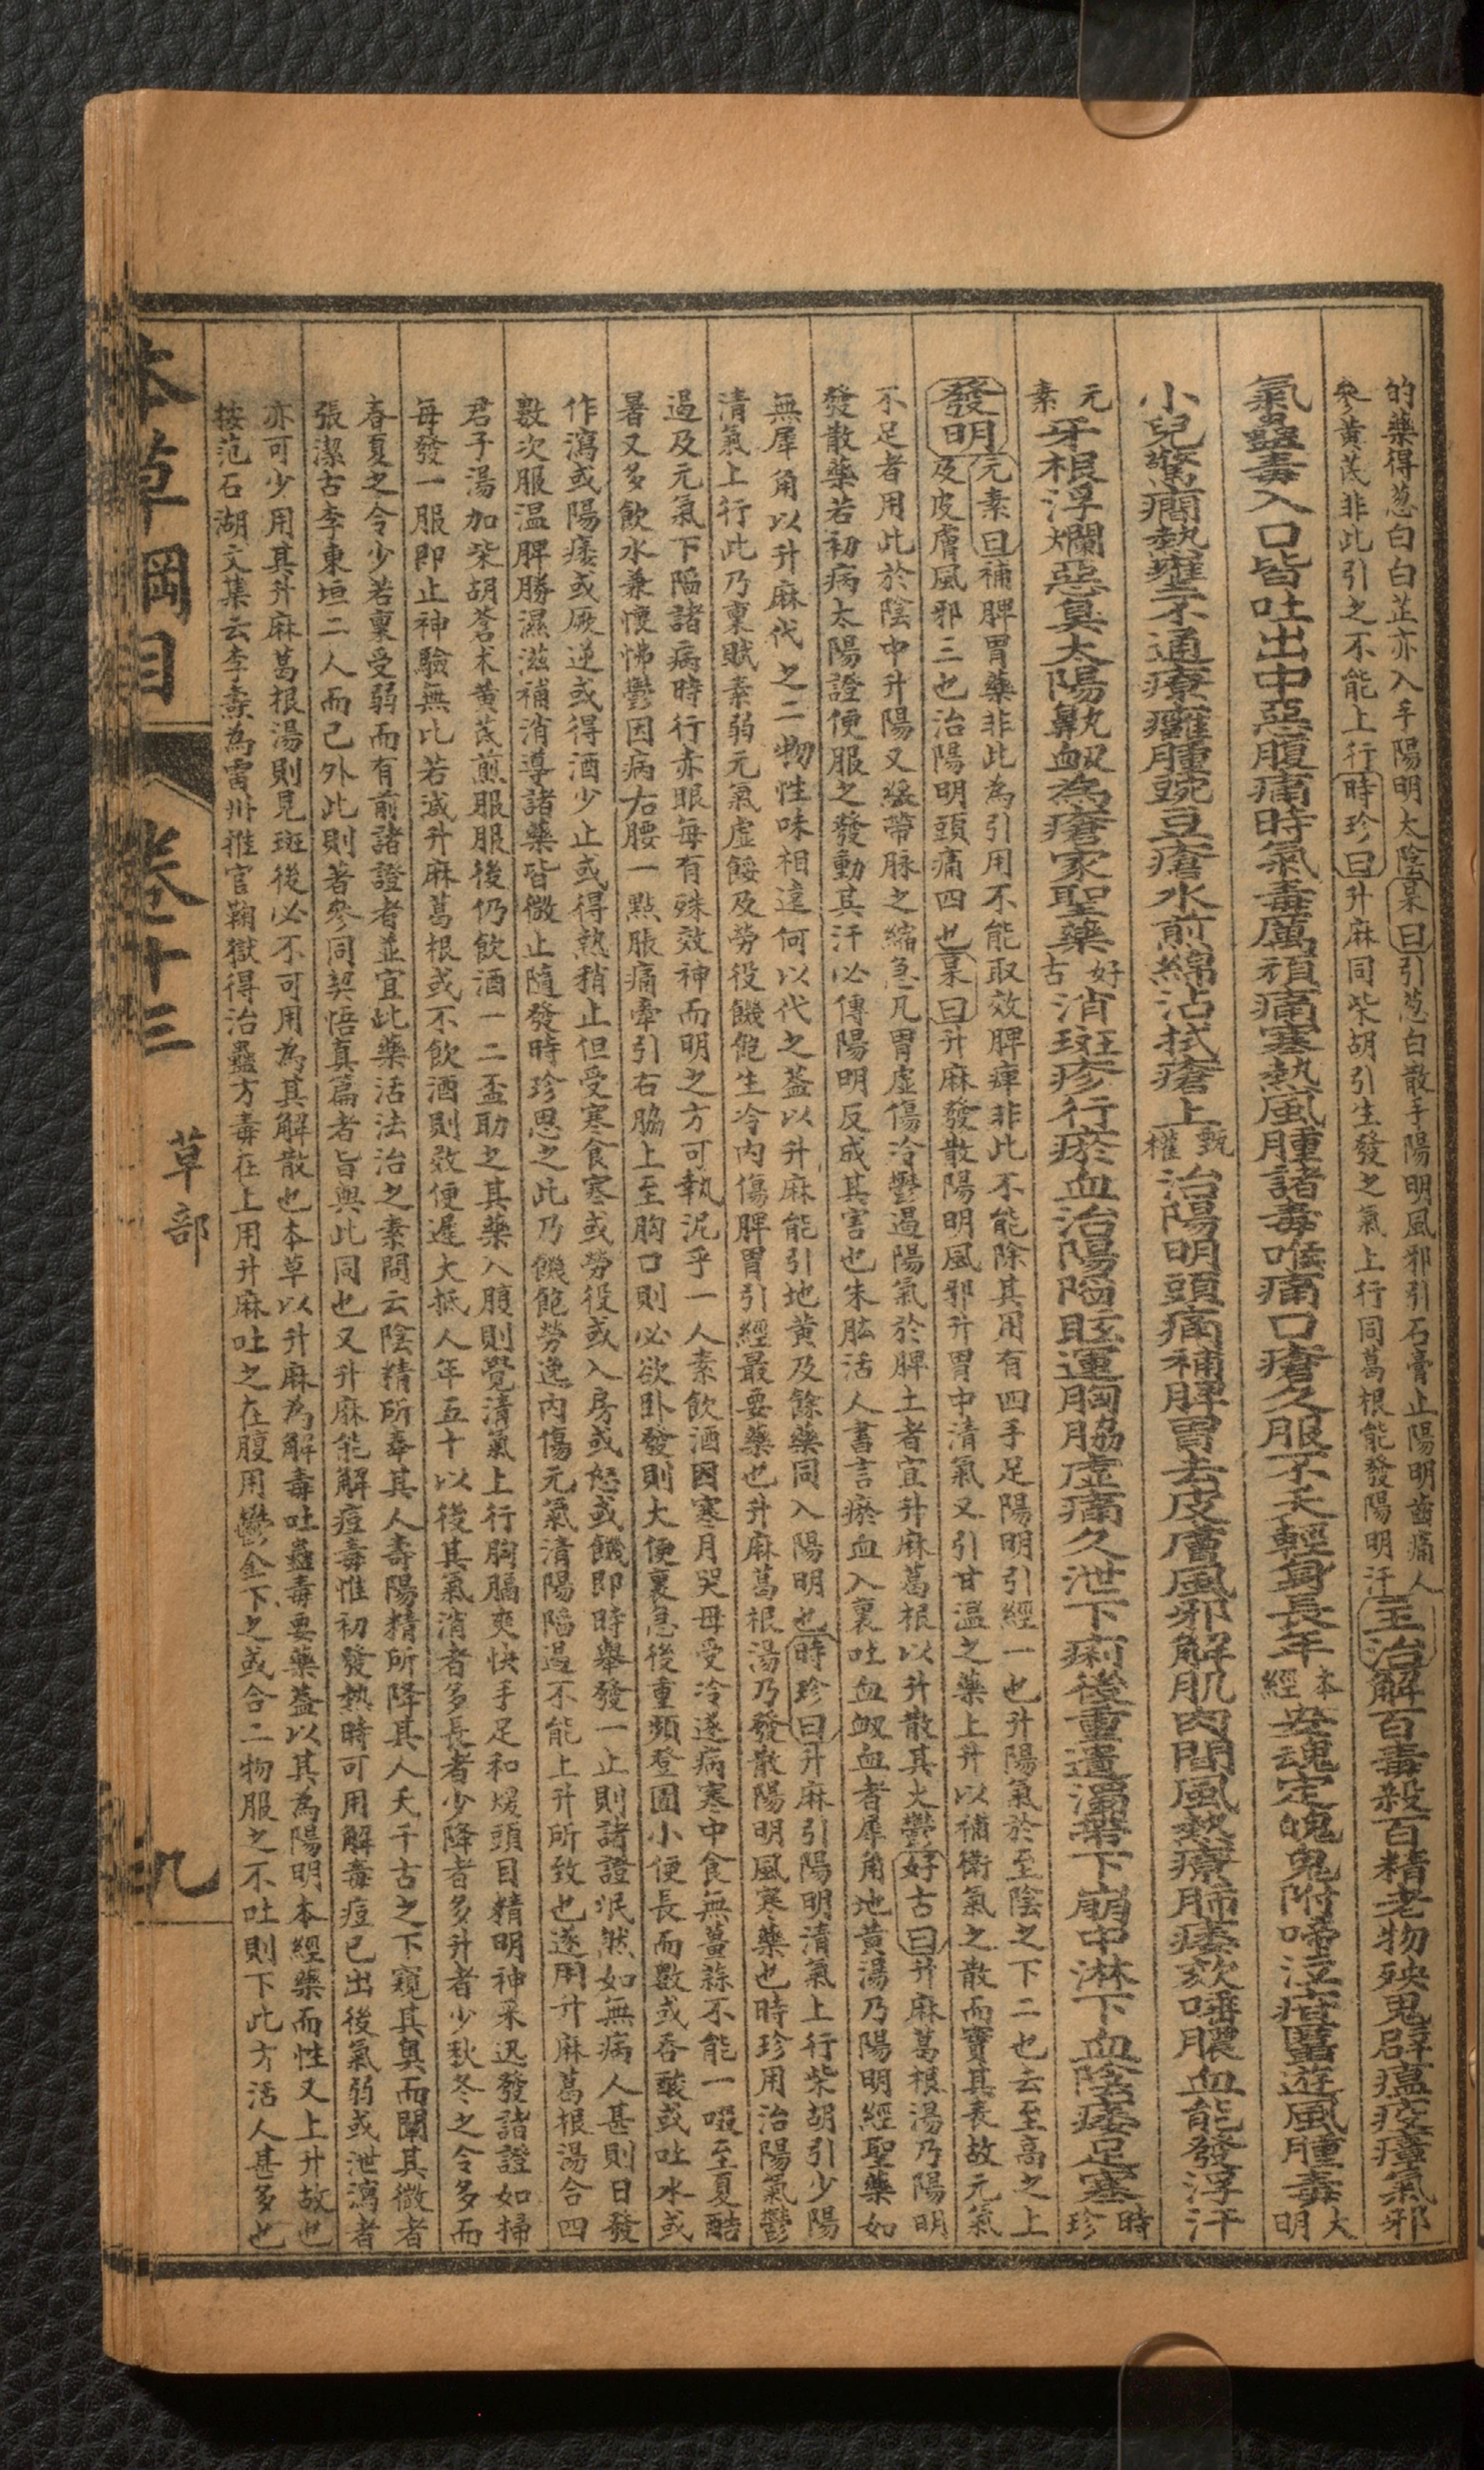 的藥得葱白白芷亦入手陽明太陰杲曰引葱白散手陽明風邪引石膏止陽明齒痛人
參黃芪非此引之不能上行時珍曰升麻同柴胡引生發之氣上行同葛根能發陽明汗
主治解百毒殺百精老物殃鬼辟瘟疫瘴氣邪
氣蠱毒入口皆吐出中惡腹痛時氣毒厲頭痛寒熱風腫諸毒喉痛口瘡久服不夭輕身長年本經安魂定魄鬼附啼泣疳䘌遊風腫毒大明
小兒驚癇熱壅不通療癰腫豌豆瘡水煎綿沾拭瘡上甄權治陽明頭痛補脾胃去皮膚風邪解肌肉間風熱療肺痿欬唾膿血能發浮汗
元素牙根浮爛惡臭太陽鼽衂為瘡家聖藥好古消斑疹行瘀血治陽陷眩運胸脇虛痛久泄下痢後重遺濁帶下崩中淋下血陰痿足寒時珍
發明元素曰補脾胃藥非此為引用不能取效脾痺非此不能除其用有四手足陽明引經一也升陽氣於至陰之下二也去至高之上
及皮膚風邪三也治陽明頭痛四也杲曰升麻發散陽明風邪升胃中清氣又引甘溫之藥上升以補衛氣之散而實其表故元氣
不足者用此於陰中升陽又緩帶脉之縮急凡胃虛傷冷鬱遏陽氣於脾土者宜升麻葛根以升散其火鬱好古曰升麻葛根湯乃陽明
發散藥若初病太陽證便服之發動其汗必傳陽明反成其害也朱肱活人書言瘀血入裏吐血衂血者犀角地黃湯乃陽明經聖藥如
無犀角以升麻代之二物性味相遠何以代之蓋以升麻能引地黃及餘藥同入陽明也時珍曰升麻引陽明清氣上行柴胡引少陽
清氣上行此乃稟賦素弱元氣虛餒及勞役饑飽生冷內傷脾胃引經最要藥也升麻葛根湯乃發散陽明風寒藥也時珍用治陽氣鬱
遏及元氣下陷諸病時行赤眼每有殊效神而明之方可執泥乎一人素飲酒因寒月哭母受冷遂病寒中食無薑蒜不能一啜至夏酷
暑又多飲水兼懷怫鬱因病右腰一點脹痛牽引右脇上至胸口則必欲卧發則大便裏急後重頻登圊小便長而數或吞酸或吐水或
作瀉或陽痿或厥逆或得酒少止或得熱稍止但受寒食寒或勞役或入房或怒或饑即時舉發一止則諸證泯然如無病人甚則日發
數次服温脾勝濕滋補消導諸藥皆微止隨發時珍思之此乃饑飽勞逸內傷元氣清陽陷遏不能上升所致也遂用升麻葛根湯合四
君子湯加柴胡蒼术黃芪煎服服後仍飲酒一二盃助之其藥入腹則覺清氣上行胸膈爽快手足和煖頭目精明神采迅發諸證如掃
每發一服即止神驗無比若減升麻葛根或不飲酒則效便遲大抵人年五十以後其氣消者多長者少降者多升者少秋冬之令多而
春夏之令少若稟受弱而有前諸證者並宜此藥活法治之素問云陰精所奉其人壽陽精所降其人夭千古之下窺其奧而闡其微者
張潔古李東垣二人而已外此則著參同契悟真篇者旨與此同也又升麻能解痘毒惟初發熱時可用解毒痘已出後氣弱或泄瀉者
亦可少用其升麻葛根湯則見斑後必不可用為其解散也本草以升麻為解毒吐蠱毒要藥蓋以其為陽明本經藥而性又上升故也
按范石湖文集云李燾為雷州推官鞫獄得治蠱方毒在上用升麻吐之在腹用鬱金下之或合二物服之不吐則下此方活人甚多也
本草綱目 卷十三 草部 九